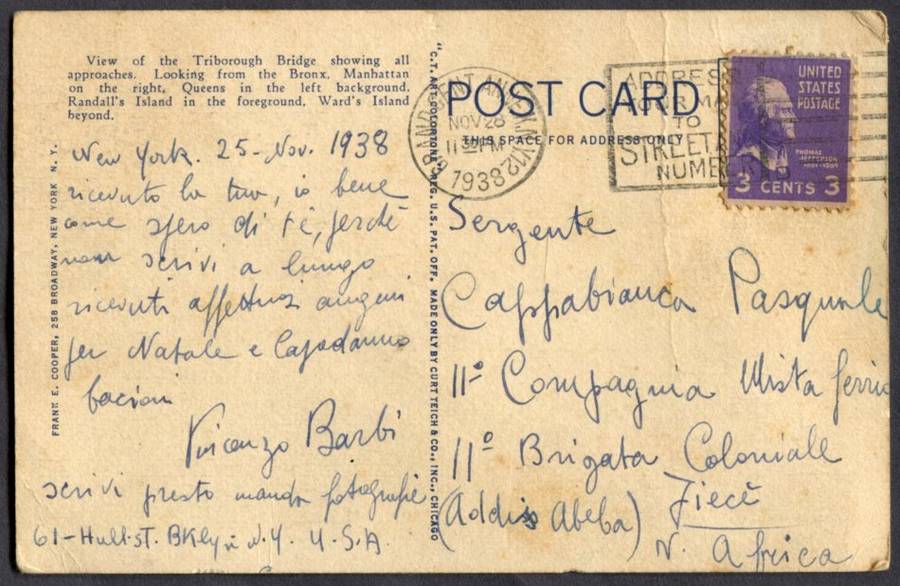 View of the Triborough Bridge showing all
approaches. Looking from the Bronx, Manhattan
on the right, Queens in the left background,
Randall's Island in the foreground, Ward's Island
beyond.
New York. 25-Nov. 1938
ricevuto la tua, io bene
come spero di te, perchè
non scrivi a lungo
ricevuti affettuosi auguri
per Natale e Capodanno
bacioni
Vincenzo Barbi
scrivi presto manda fotografie
61-Hull-st. BKlyn N.Y. U.S.A.
FRANK E. COOPER, 258 BROADWAY, NEW YORK N. Y.
"C.T. ART-COLORTONE" REG. U.S. PAT. OFF. MADE ONLY BY CURT TEICH & CO., INC., CHICAGO
POST CARD
THIS SPACE FOR ADDRESS ONLY
NOV 28
1938
ADDRESS
TO
STREET
UNITED
STATES
POSTAGE
THOMAS
JEFFERSON
3 CENTS 3
Sergente
Cappabianca Pasquale
11º Compagnia Mista
11º Brigata Coloniale
(Addis Abeba)
Africa